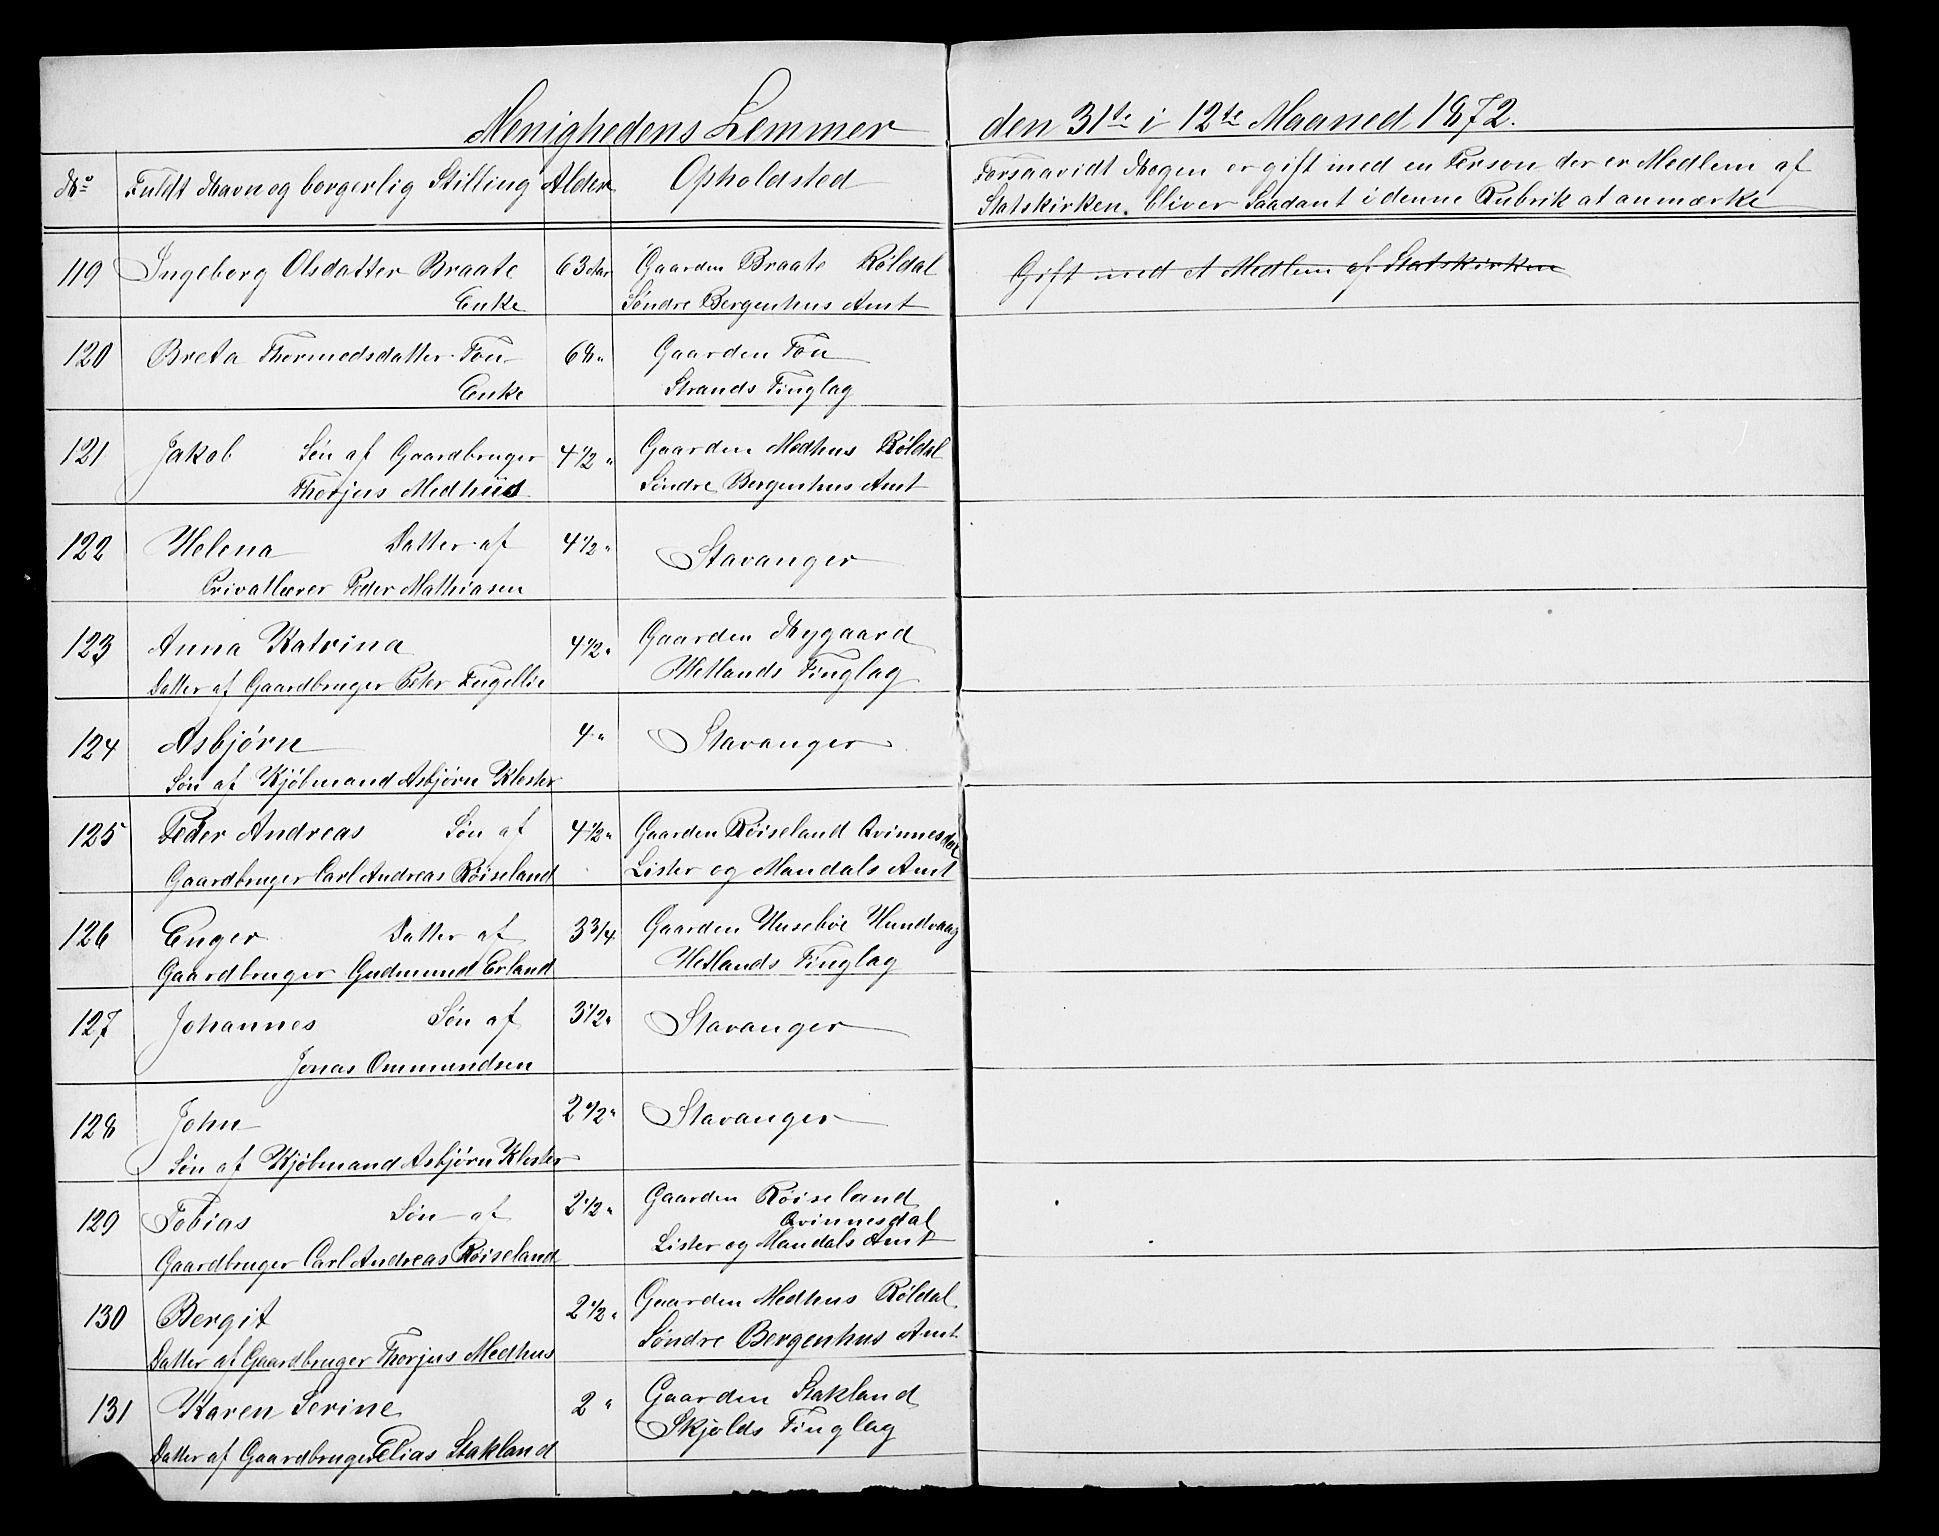 Menighedens Lemmer den 31te i 12te Maaned 1872.
No Fuldt Navn og borgerlig Stilling Alder Opholdsted Forsaavidt Nogen er gift med en Person der er Medlem af
Statskirken. bliver Saadant i denne Rubrik at anmærke
119 Ingeborg Olsdatter Braate 63 Aar Gaarden Braate Røldal Gift med et Medlem af Statskirken
Enke Søndre Bergenhus Amt
120 Breta Thormodsdatter Tou 68 " Gaarden Tou
Enke Strands Tinglag
121 Jakob Søn af Gaardbruger 4 1/2 " Gaarden Medhus Røldal
Thorjus Medhus Søndre Bergenhus Amt
122 Helena Datter af 4 1/2 " Stavanger
Privatlærer Peder Mathiasen
123 Anna Katrina 4 1/2 " Gaarden Nygaard
Datter af Gaardbruger Peter Fugellie Hetlands Tinglag
124 Asbjørn 4 " Stavanger
Søn af Kjøbmand Asbjørn Kloster
125 Peder Andreas Søn af 4 1/2 " Gaarden Røiseland Qvinnesdal
Gaardbruger Carl Andreas Røiseland Lister og Mandals Amt
126 Enger Datter af 3 3/4 Gaarden Husebøe Hundvaag
Gaardbruger Gudmund Erland Hetlands Tinglag
127 Johannes Søn af 3 1/2 " Stavanger
Jonas Ommundsen
128 John 2 1/2 " Stavanger
Søn af Kjøbmand Asbjørn Kloster
129 Tobias Søn af 2 1/2 " Gaarden Røiseland
Qvinnesdal
Gaardbruger Carl Andreas Røiseland Lister og Mandals Amt
130 Bergit 2 1/2 " Gaarden Medhus Røldal
Datter af Gaardbruger Thorjus Medhus Søndre Bergenhus Amt
131 Karen Serine 2 " Gaarden Stakland
Datter af Gaardbruger Elias Stakland Skjolds Tinglag